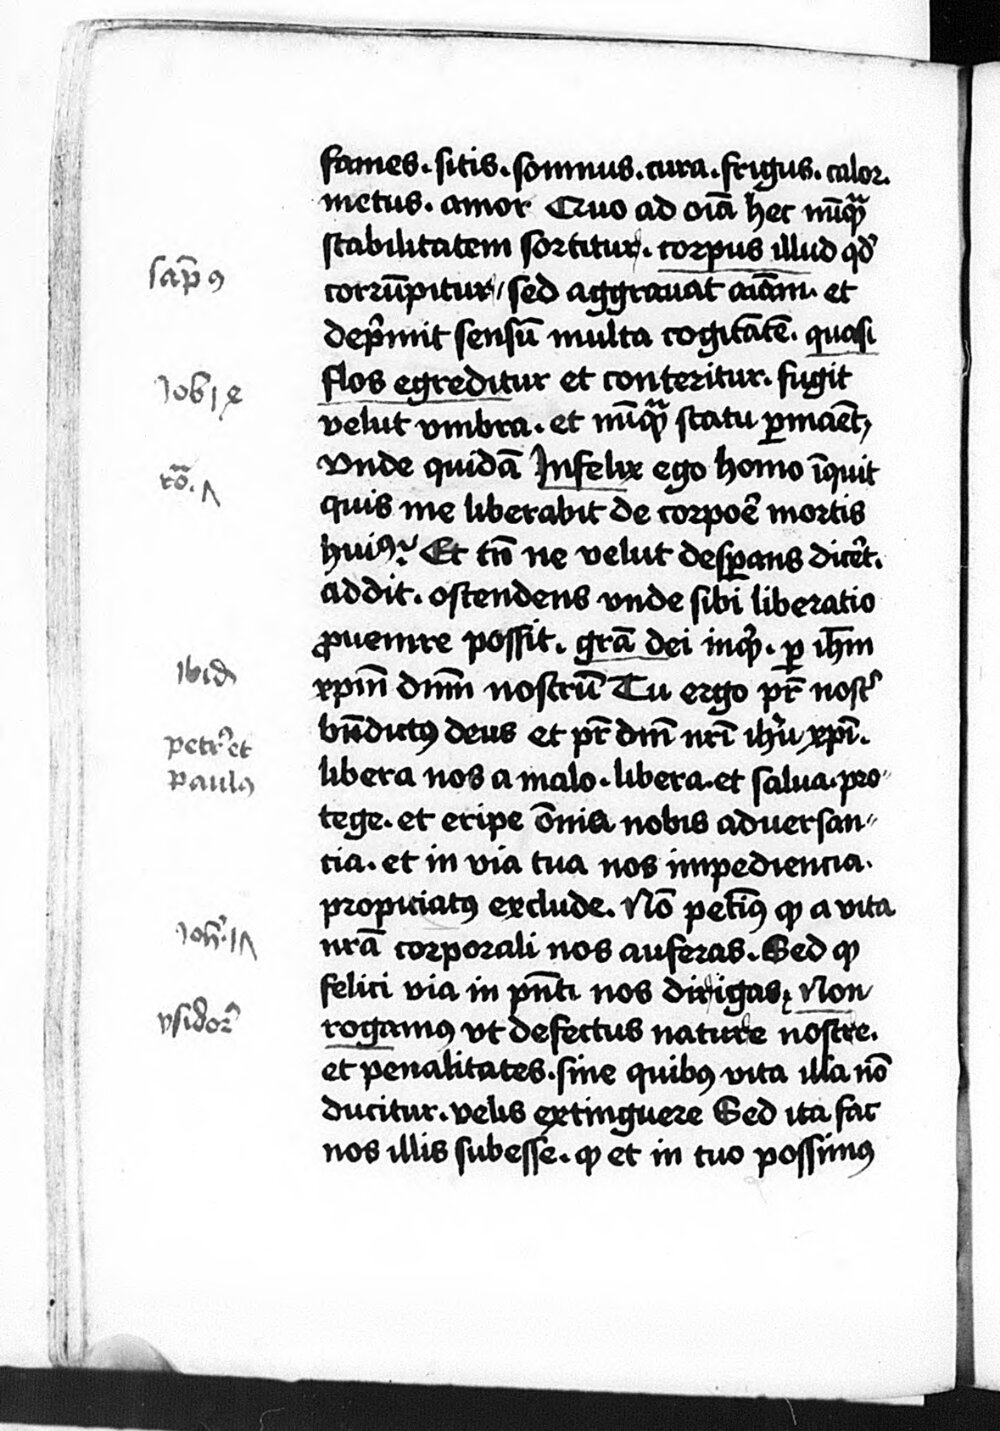 fames. sitis. somnus. cura. frigus. calor.
metus. amor Quo ad oĩa hec nũqᷓ
stabilitatem sortitur. corpus illud qd̉
sap̃ 9
corrũpitur / sed aggrauat aĩam. et
dep̃mit sensũ multa cogitãtẽ. quasi
flos egreditur et conteritur. fugit
velut vmbra. et nũqᷓ statu ꝑmaẽt,
ro̅. 7
Vnde quidã Infelix ego homo ĩquit
quis me liberabit de corpoẽ mortis
huiꝰ? Et tñ ne velut desꝑans dicẽt.
addit. ostendens vnde sibi liberatio
ꝓuenire possit. grã dei inqͥ. ꝑ ih̅m
ibid̃
xp̅m dn̅m nostrũ Tu ergo pr̃ nostͥ
petrꝰ et
bn̅dictꝰ deus et pr̃ dn̅i nr̃i ihu̅ xp̅i.
paulꝰ
libera nos a malo. libera. et salua. pro-
tege. et eripe õnia nobis aduersan-
cia. et in via tua nos impediencia.
propiciatꝰ exclude. Nõ petĩꝰ qͦ a vita
nr̃a corporali nos auferas. Sed qͦ
felici via in pñti nos dirigas; Non
ysidorꝰ
rogamꝰ vt defectus nature nostre.
et penalitates. sine quibꝰ vita illa nõ
ducitur. velis extinguere Sed ita fac
nos illis subesse. qͦ et in tuo possimꝰ